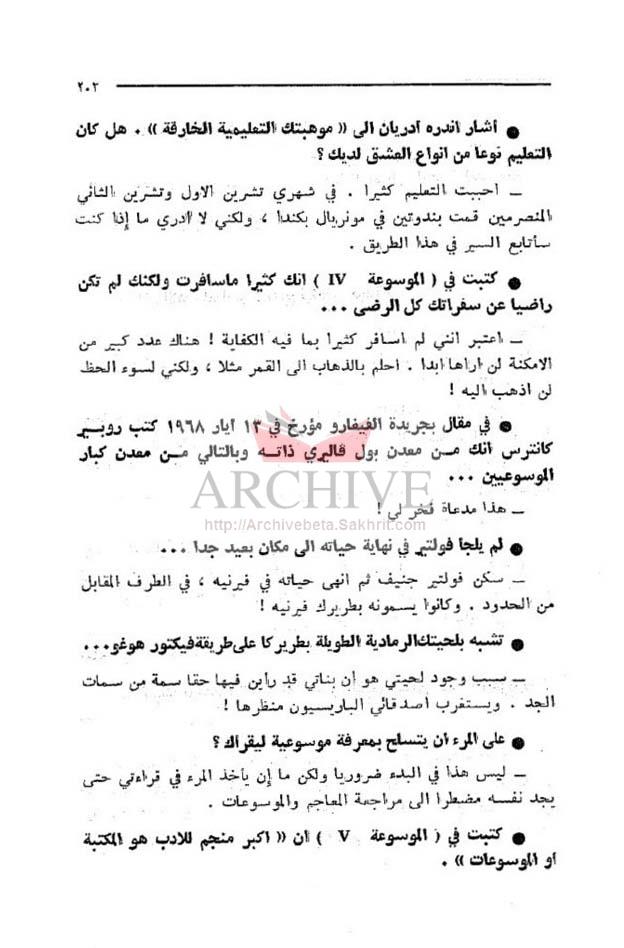 ٢٠٢
● أشار اندره ادريان الى « موهبتك التعليمية الخارقة » . هل كان
التعليم نوعا من انواع العشق لديك ؟
ـ احببت التعليم كثيرا . في شهري تشرين الاول وتشرين الثاني
المنصرمين قمت بندوتين في مونريال بكندا ، ولكني لا ادري ما إذا كنت
سأتابع السير في هذا الطريق .
● كتبت في ( الموسوعة IV ) انك كثيرا ماسافرت ولكنك لم تكن
راضيا عن سفراتك كل الرضى ...
ـ اعتبر انني لم اسافر كثيرا بما فيه الكفاية ! هناك عدد كبير من
الامكنة لن اراها ابدا . احلم بالذهاب الى القمر مثلا ، ولكني لسوء الحظ
لن اذهب اليه !
● في مقال بجريدة الفيفارو مؤرخ في ١٣ ايار ١٩٦٨ كتب روبير
كانترس انك من معدن بول فاليري ذاته وبالتالي من معدن كبار
الموسوعيين ...
ARCHIVE
ـ هذا مدعاة فخر لي !
http://Archivebeta.Sakhrit.com
● لم يلجا فولتير في نهاية حياته الى مكان بعيد جدا ...
ـ سكن فولتير جنيف ثم انهى حياته في فيرنيه ، في الطرف المقابل
من الحدود . وكانوا يسمونه بطريرك فيرنيه !
● تشبه بلحيتك الرمادية الطويلة بطريركا على طريقة فيكتور هوغو...
ـ سبب وجود لحيتي هو ان بناتي قد راين فيها حقا سمة من سمات
الجد . ويستغرب اصدقائي الباريسيون منظرها !
● على المرء ان يتسلح بمعرفة موسوعية ليقراك ؟
ـ ليس هذا في البدء ضروريا ولكن ما إن يأخذ المرء في قراءتي حتى
يجد نفسه مضطرا الى مراجعة المعاجم والموسوعات .
● كتبت في ( الموسوعة V ) ان « اكبر منجم للادب هو المكتبة
او الموسوعات » .